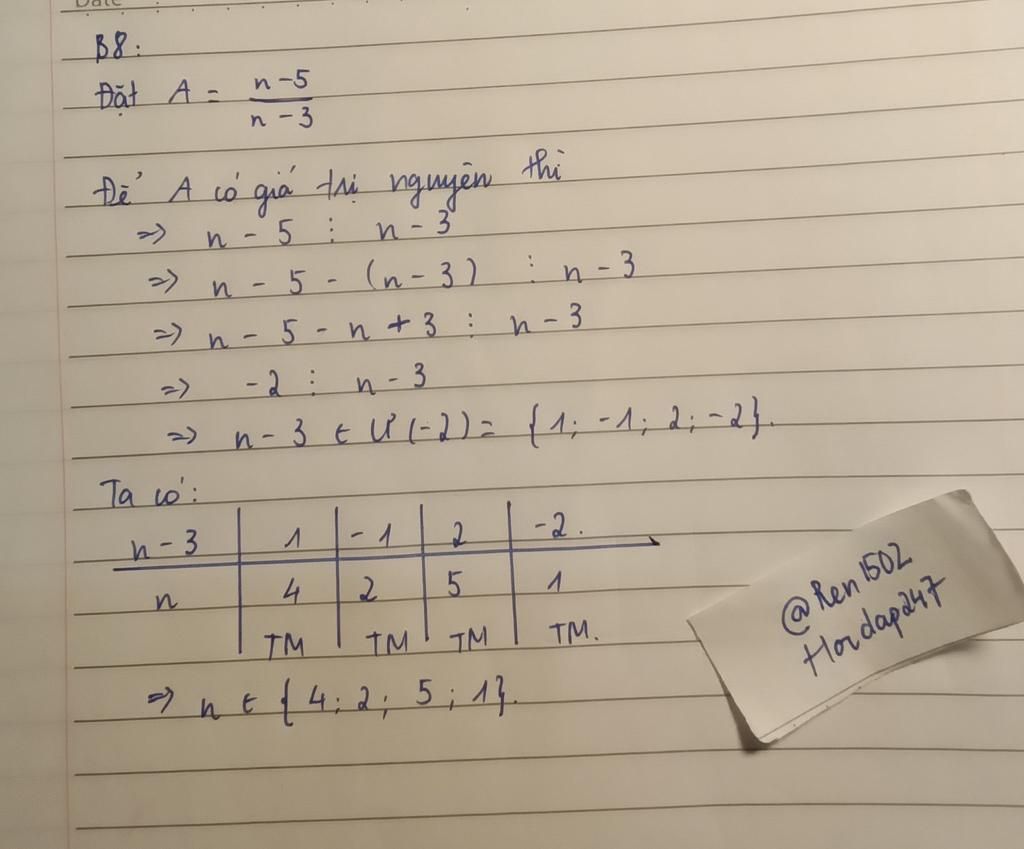 Date
B8:
Đặt A = n-5 / n-3
Để A có giá trị nguyên thì
=> n - 5 ⋮ n - 3
=> n - 5 - (n - 3) ⋮ n - 3
=> n - 5 - n + 3 ⋮ n - 3
=> -2 ⋮ n - 3
=> n - 3 ∈ Ư(-2) = {1; -1; 2; -2}.
Ta có:
n-3 | 1 | -1 | 2 | -2.
n | 4 | 2 | 5 | 1
TM | TM | TM | TM.
=> n ∈ {4; 2; 5; 1}.
@Ren1502
Hoidap247